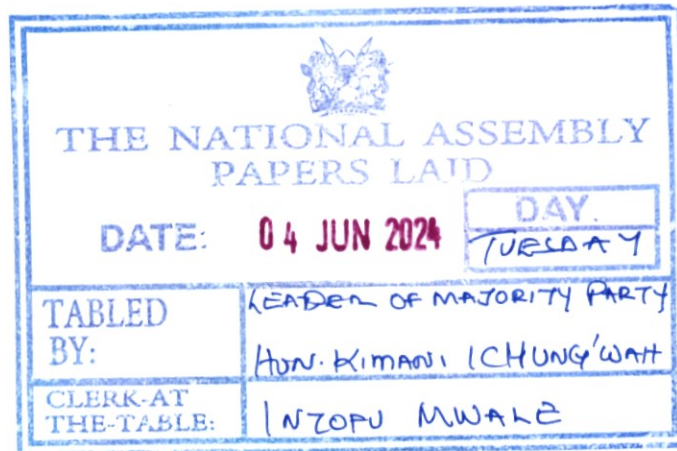 THE NATIONAL ASSEMBLY
PAPERS LAID
DATE: 04 JUN 2024
DAY.
TUESDAY
TABLED BY:
LEADER OF MAJORITY PARTY
HON. KIMANI ICHUNG'WAH
CLERK-AT THE-TABLE:
INZOFU MWALE